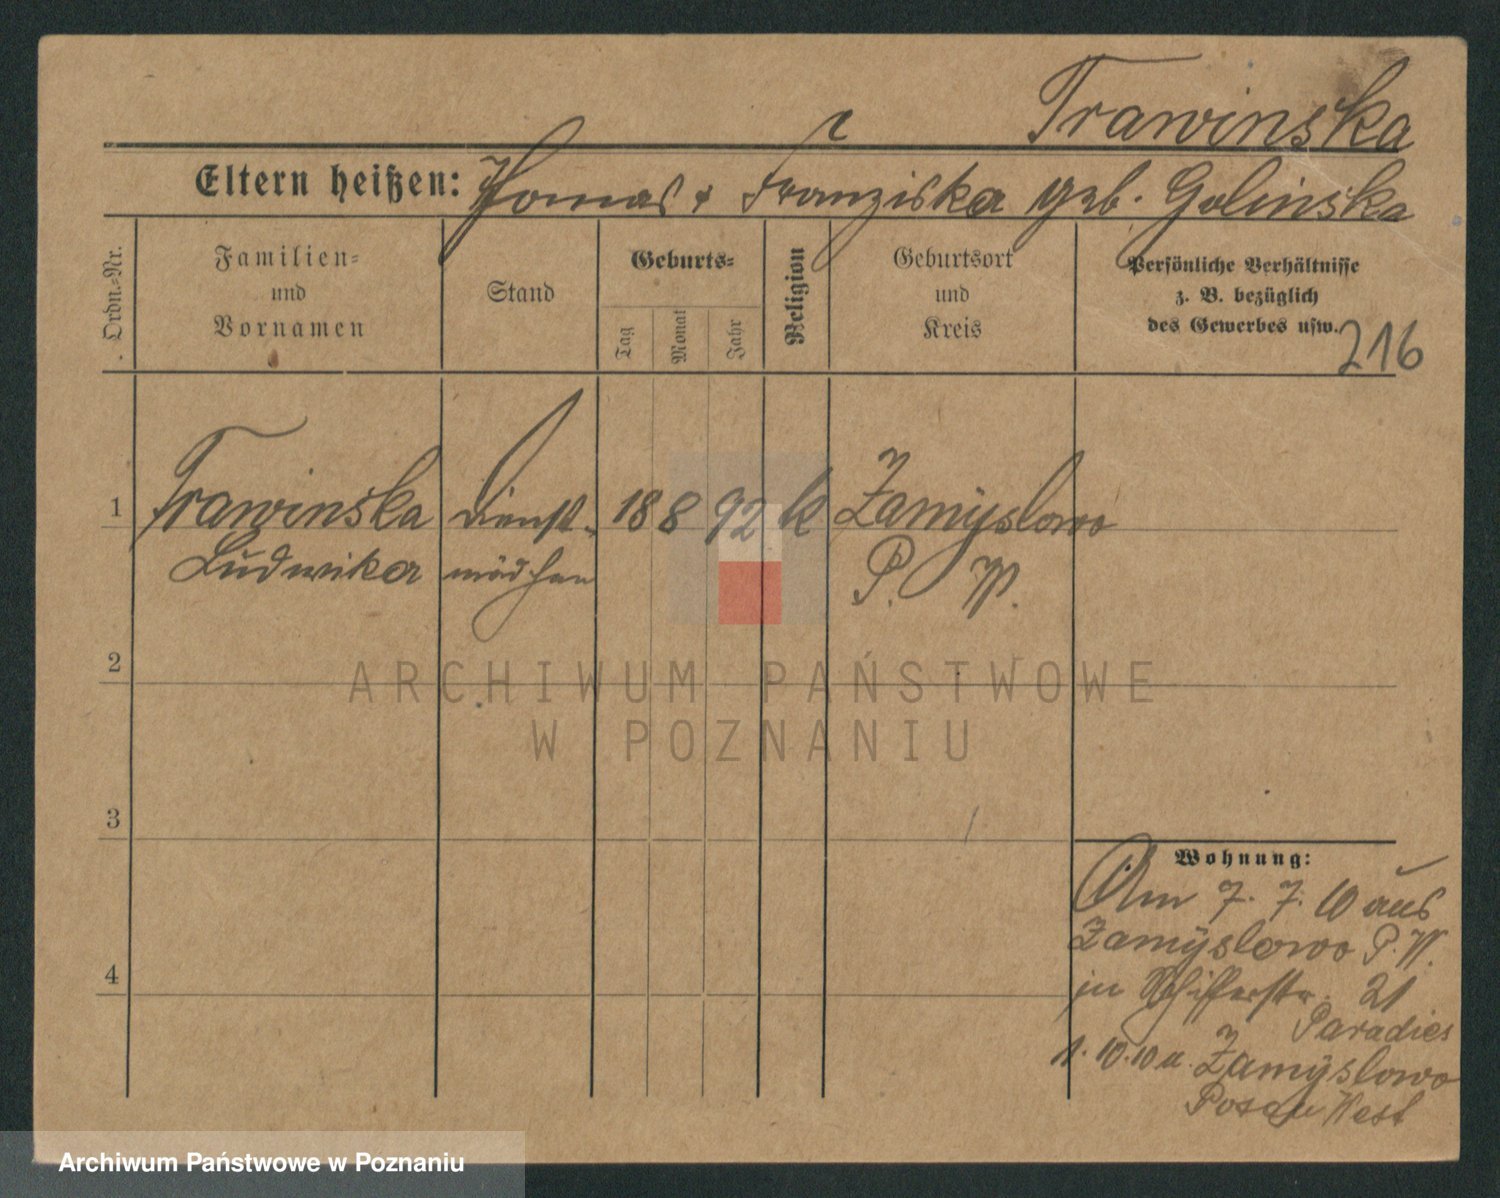 Trawinska
Eltern heißen: Thomas & Franziska geb. Golinska
Ordn.-Nr.
Familien-
und
Vornamen
Stand
Geburts-
Tag
Monat
Jahr
Religion
Geburtsort
und
Kreis
Persönliche Verhältnisse
z. B. bezüglich
des Gewerbes usw.
216
1 Trawinska Dienst- 18 8 92 k Zamyslowo
Ludwika mädchen P. W.
2
3
4
Wohnung:
Am 7. 7. 10 aus
Zamyslowo P. W.
in Schifferstr. 21
Paradies
1. 10. 10 n. Zamyslowo
Posen West
ARCHIWUM PAŃSTWOWE
W POZNANIU
Archiwum Państwowe w Poznaniu